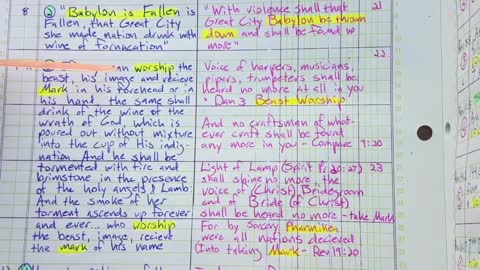 8 ② "Babylon is Fallen is
Fallen, that Great City
she made nation drunk with
wine of fornacation"
worship the
beast, his image and recieve
Mark in his forehead or in
his hand, the same shall
drink of the wine of the
wrath of God, which is
poured out without mixture
into the cup of His indig-
nation. And he shall be
tormented with fire and
brimstone in the presence
of the holy angels & Lamb
And the smoke of her
torment ascends up forever
and ever... who worship
the beast, image, recieve
the mark of his name
"With violence shall that 21
Great City Babylon be thrown
down and shall be found no
more"
22
Voice of harpers, musicians,
pipers, trumpeters shall be
heard no more at all in you
Dan 3 Beast Worship
And no craftsman of what-
ever craft shall be found
any more in you - Compare 9:20
Light of Lamp (Spirit Pr 20:27) 23
shall shine no more, the
voice of (Christ) Bridegroom
and of Bride (of Christ)
shall be heard no more - take Mark
For by Sorcery Pharmikea
were all nations decieved
Into taking Mark - Rev 19:20